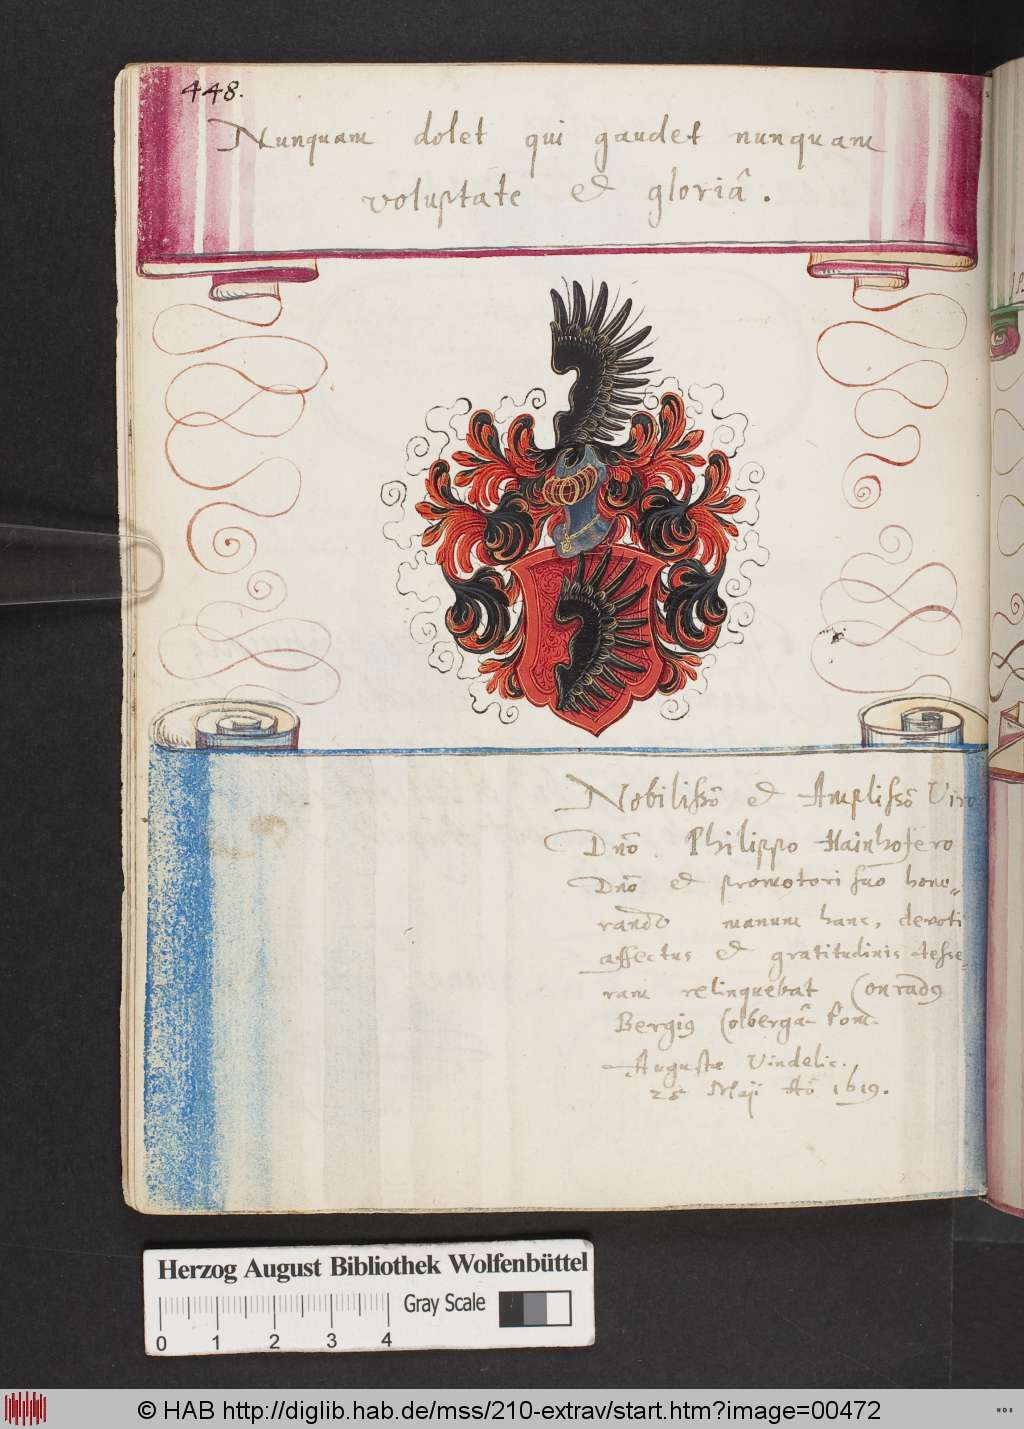 448.
Nunquam dolet qui gaudet nunquam
voluptate et gloriâ.
Nobilissõ et Amplissõ Viro
Dnõ. Philippo Hainhofero
Dnõ et promotori suo hono„
rando manum hanc, devoti
affectus et gratitudinis tesse„
ram relinquebat Conradꝯ
Bergiꝯ Colbergâ-Pom.
Augustæ Vindelic.
25 Maij Aõ 1619.
Herzog August Bibliothek Wolfenbüttel
Gray Scale
0 1 2 3 4
© HAB http://diglib.hab.de/mss/210-extrav/start.htm?image=00472